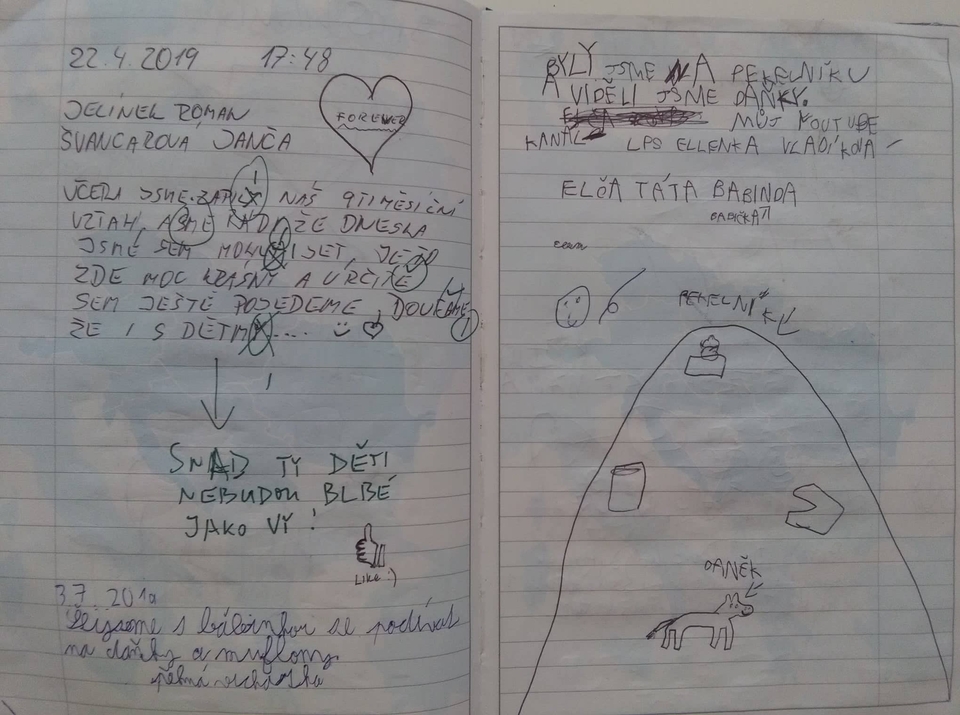 22.4.2019 17:48
JELÍNEK ROMAN
ŠVANCAROVÁ JANČA
FOREWER
VČERA JSME ZAPILY NÁŠ 9TI MĚSÍČNÍ
VZTAH, A SME RÁDI ŽE DNESKA
JSME SEM MOHLY JET, JE TO
ZDE MOC KRÁSNÝ A URČITĚ
SEM JEŠTĚ POJEDEME, DOUFÁME
ŽE I S DĚTMY....
SNAD TY DĚTI
NEBUDOU BLBÉ
JAKO VY!
LIKE :)
3.7. 2019
se podívat
na daňky a muflony
pěkná
BYLY JSME NA PEKELNÍKU
A VIDĚLI JSME DAŇKY.
MŮJ YOUTUBE
KANÁL LPS ELLENKA VLADÍKOVA
ELČA TÁTA BABI JINDA
PEKELNÍK
DANĚK